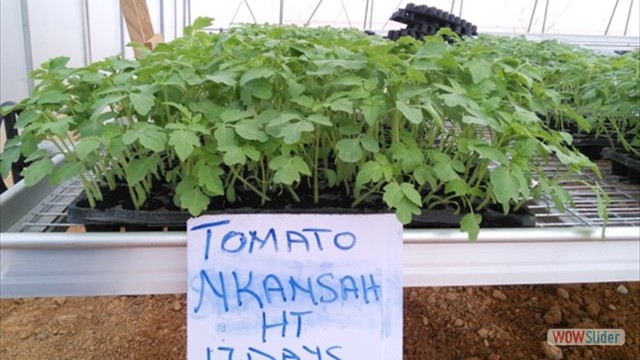 TOMATO
NKANSAH
HT
17 DAYS
WOWSlider